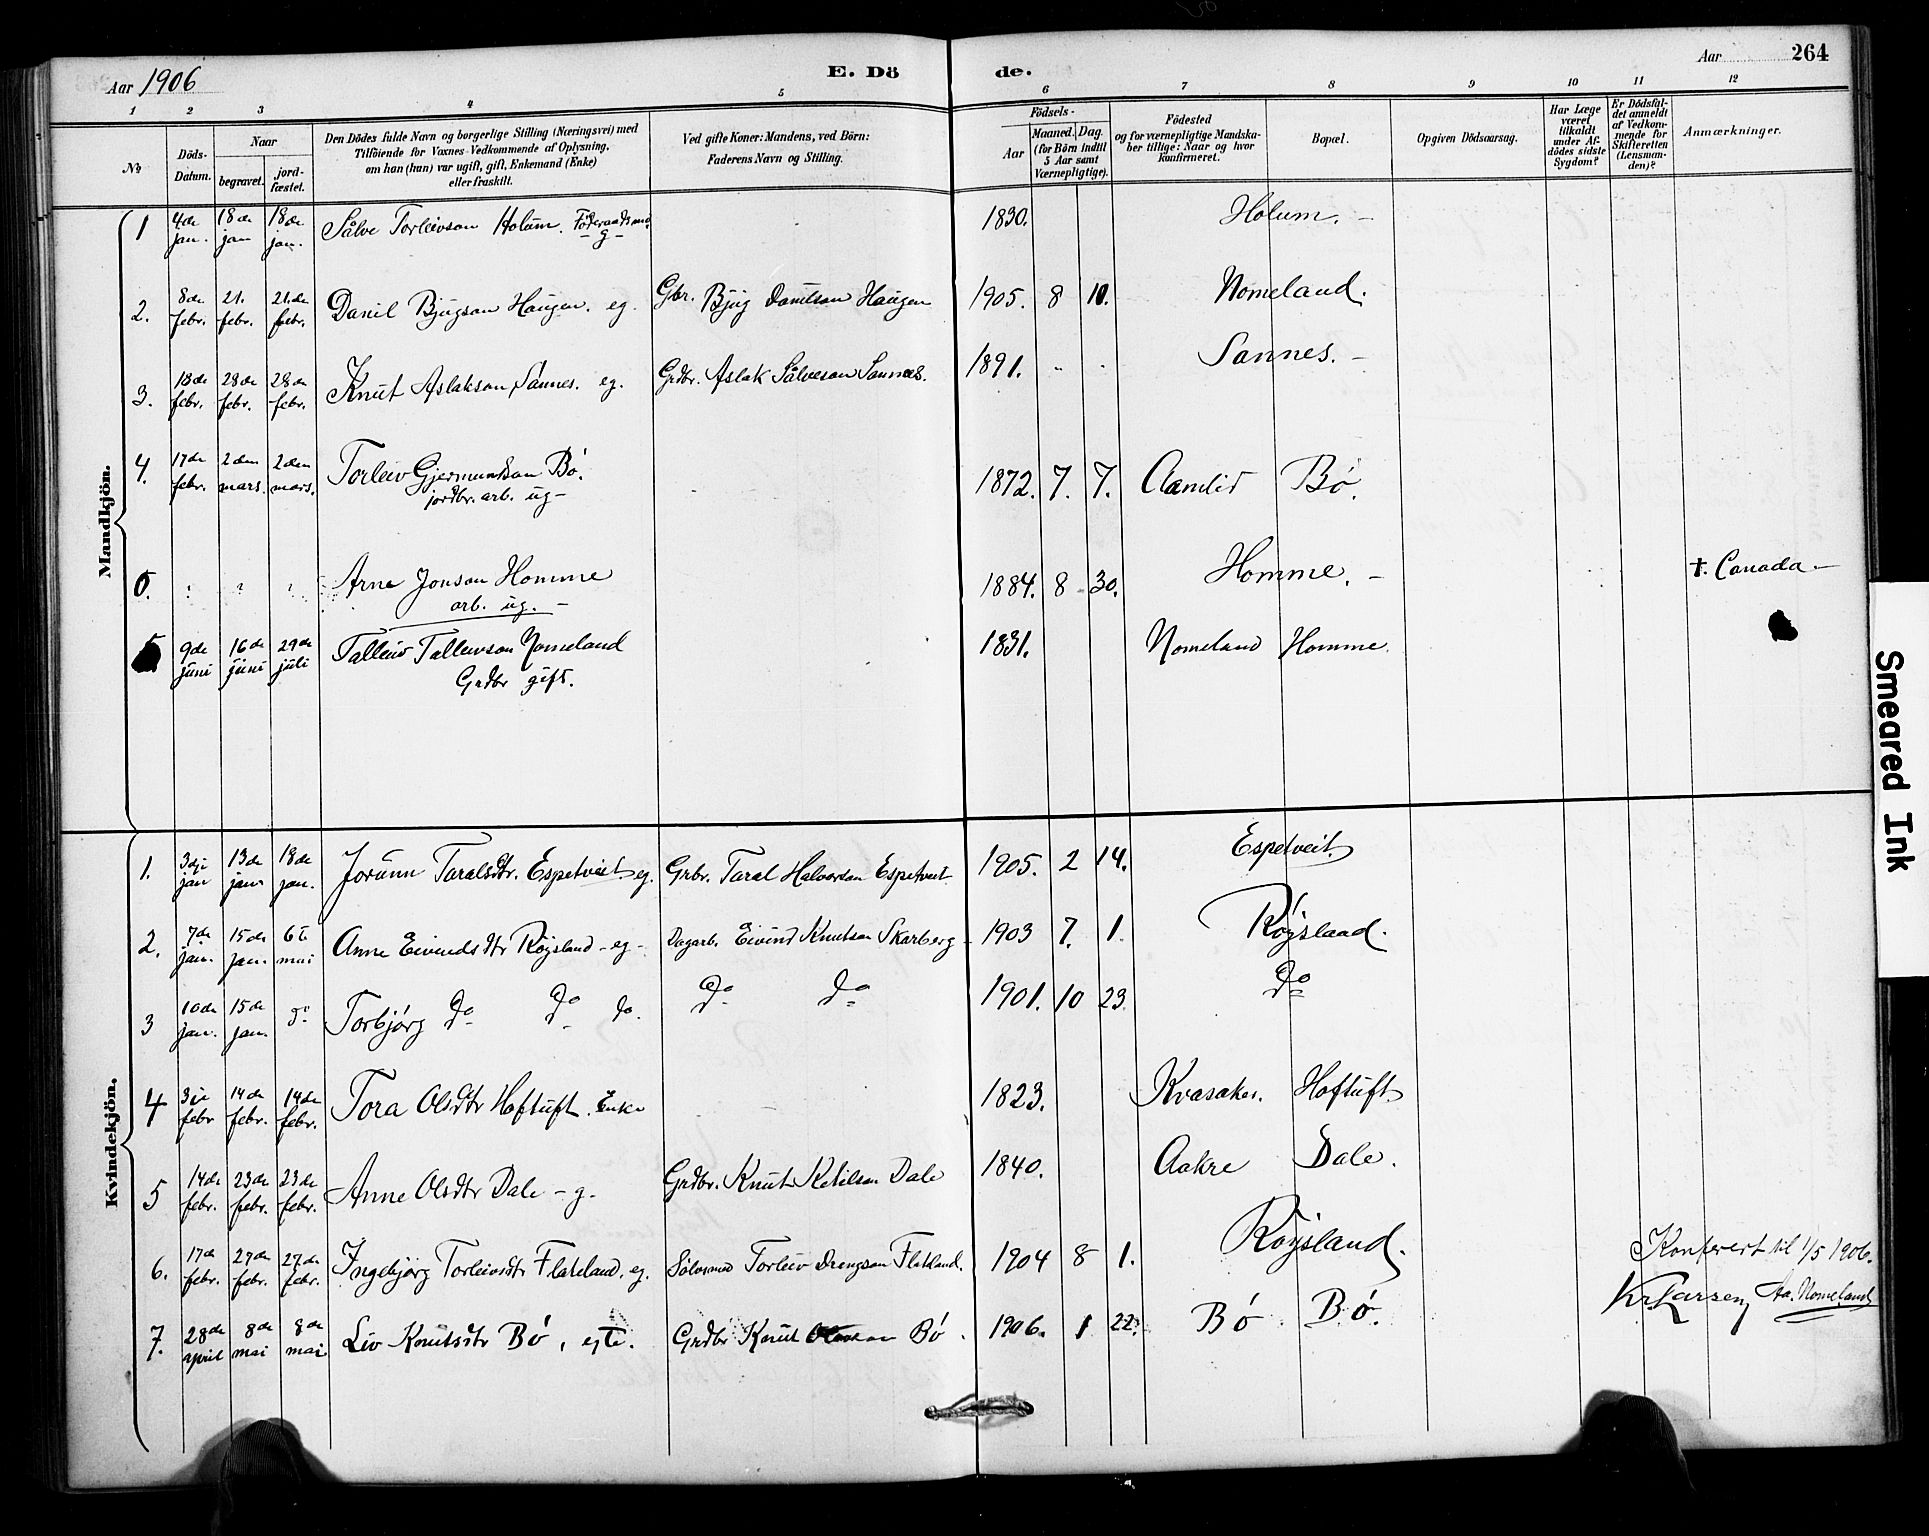 Aar 1906
E. Dö
de.
Aar
264
1 2 3 4 5 6 7 8 9 10 11 12
No
Döds-Datum.
Naar
begravet.
jord-fæstet.
Den Dödes fulde Navn og borgerlige Stilling (Næringsvei) med
Tilföiende for Voxnes Vedkommende af Oplysning,
om han (hun) var ugift, gift, Enkemand (Enke)
eller fraskilt.
Ved gifte Koner: Mandens, ved Börn:
Faderens Navn og Stilling.
Födsels-
Aar
Maaned. Dag.
(for Börn indtil
5 Aar samt
Værnepligtige).
Födested
og for værnepligtige Mandska-
ber tillige: Naar og hvor
konfirmeret.
Bopæl.
Opgiven Dödsaarsag.
Har Læge
været
tilkaldt
under Af-
dödes sidste
Sygdom?
Er Dödsfal-
det anmeldt
af Vedkom-
mende for
Skifteretten
(Lensman-
den)?
Anmærkninger.
Mandkjön.
1 4de jan. 18de jan 18de jan. Sålve Torleivson Holum. Föderaadsmd. - g - 1830. Holum. -
2. 8de febr. 21. febr. 21.de febr. Daniel Bjugson Haugen. eg. Gbr. Bjug Danilson Haugen 1905. 8 10. Nomeland.
3. 18de febr. 28de febr. 28de febr. Knut Aslakson Sannes. eg. Grdbr. Aslak Sålveson Sannes. 1891. Sannes. -
4. 17de febr. 2den mars. 2den mars. Torleiv Gjermundson Bö.
jordbr. arb. ug - 1872. 7. 7. Aamlid Bö.
0. Arne Jonson Homme
arb. ug. - 1884. 8 - 30. Homme. - †. Canada -
5 9de juni 16de juni 29de juli Talleiv Talleivson Nomeland
Grdbr gift. 1831. Nomeland Homme.
Kvindekjön.
1. 3dje jan 13de jan 18de jan. Jorunn Taralsdtr. Espetveit eg. Grbr. Taral Halvorson Espetveit 1905. 2 14. Espetveit.
2. 7de jan. 15de jan. 6te mai Anne Eivindsdtr Röysland - eg - Dagarb. Eivind Knutson Skarberg - 1903 7. 1. Röysland.
3 10de jan. 15de jan. do Torbjörg do do do. do do 1901. 10 23. do
4 3die febr 14de febr. 14de febr. Tora Olsdtr Hoftuft. Enke 1823. Kvasaker. Hoftuft
5 14de febr. 23de febr. 23de febr. Anne Olsdtr Dale - g. Grdbr. Knut Ketilson Dale 1840. Aakre Dale.
6. 17de febr. 27de febr. 27.de febr. Ingebjörg Torleivsdtr Flateland. eg. Torleiv Drengson Flateland. 1904 8 1. Röysland.
Konferert til 1/5 1906.
Kr Larsen Aa. Nomeland
7. 28de april 8de mai 8de mai Liv Knutsdtr Bö, egte. Grdbr Knut Bö. 1906. 1 22. Bö Bö.
Smeared Ink